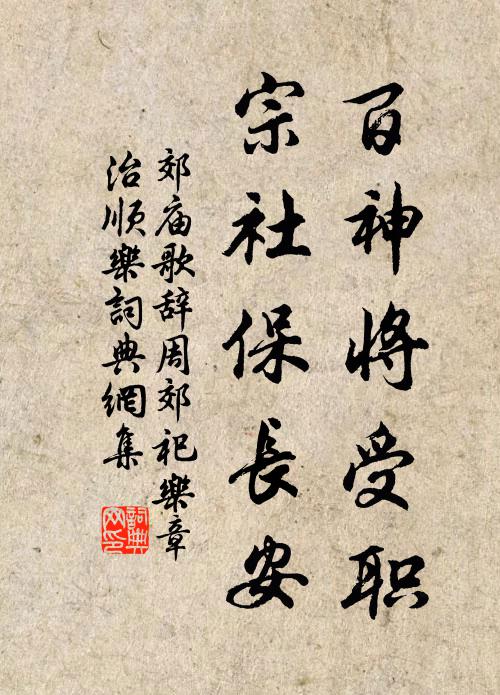 百神将受职
宗社保長安
郊庙歌辞周郊祀樂章
治順樂詞典網集
詞典网印